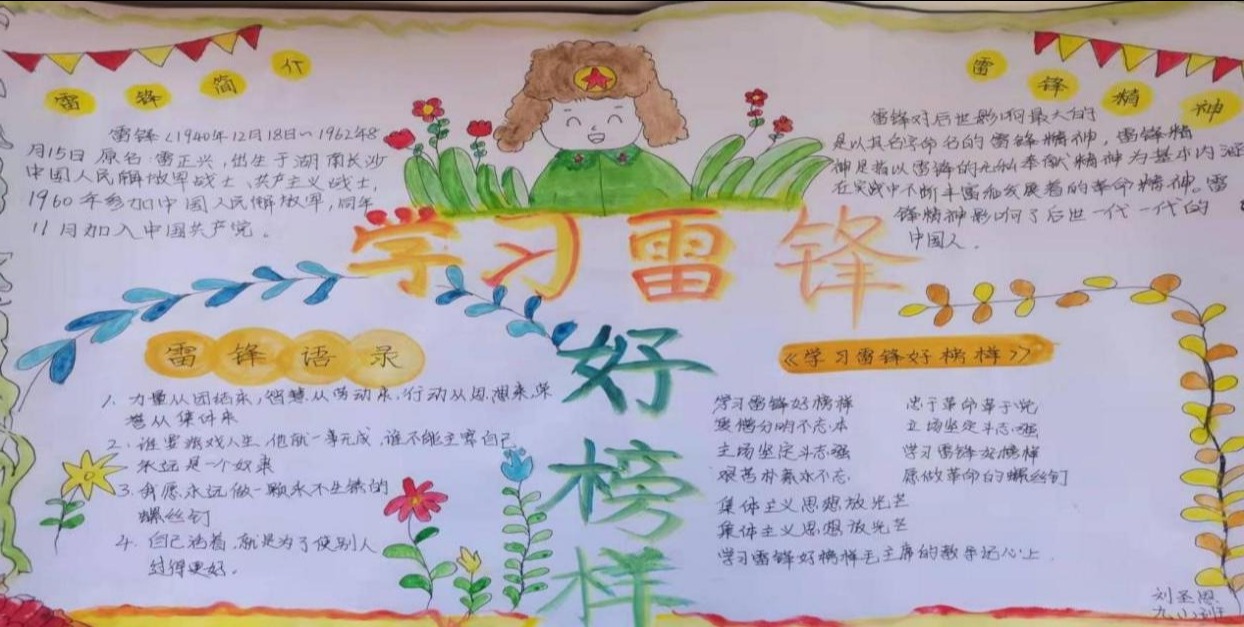 雷锋简介
雷锋（1940年12月18日～1962年8
月15日 原名：雷正兴，出生于湖南长沙
中国人民解放军战士、共产主义战士，
1960年参加中国人民解放军，同年
11月加入中国共产党。
雷锋精神
雷锋对后世影响最大的
是以其名字命名的雷锋精神，雷锋精
神是指以雷锋的无私奉献精神为基本内涵
在实践中不断丰富和发展着的革命精神。雷
锋精神影响了后世一代一代的
中国人．
学习雷锋
好榜样
雷锋语录
1、力量从团结来，智慧从劳动来，行动从思想来，荣
誉从集体来
2、谁要游戏人生，他就一事无成，谁不能主宰自己
永远是一个奴隶
3、我愿永远做一颗永不生锈的
螺丝钉
4、自己活着，就是为了使别人
过得更好。
《学习雷锋好榜样》
学习雷锋好榜样
爱憎分明不忘本
立场坚定斗志强
艰苦朴素永不忘
忠于革命革于党
立场坚定斗志强
学习雷锋好榜样
愿做革命的螺丝钉
集体主义思想放光芒
集体主义思想放光芒
学习雷锋好榜样毛主席的教导记心上
刘圣恩